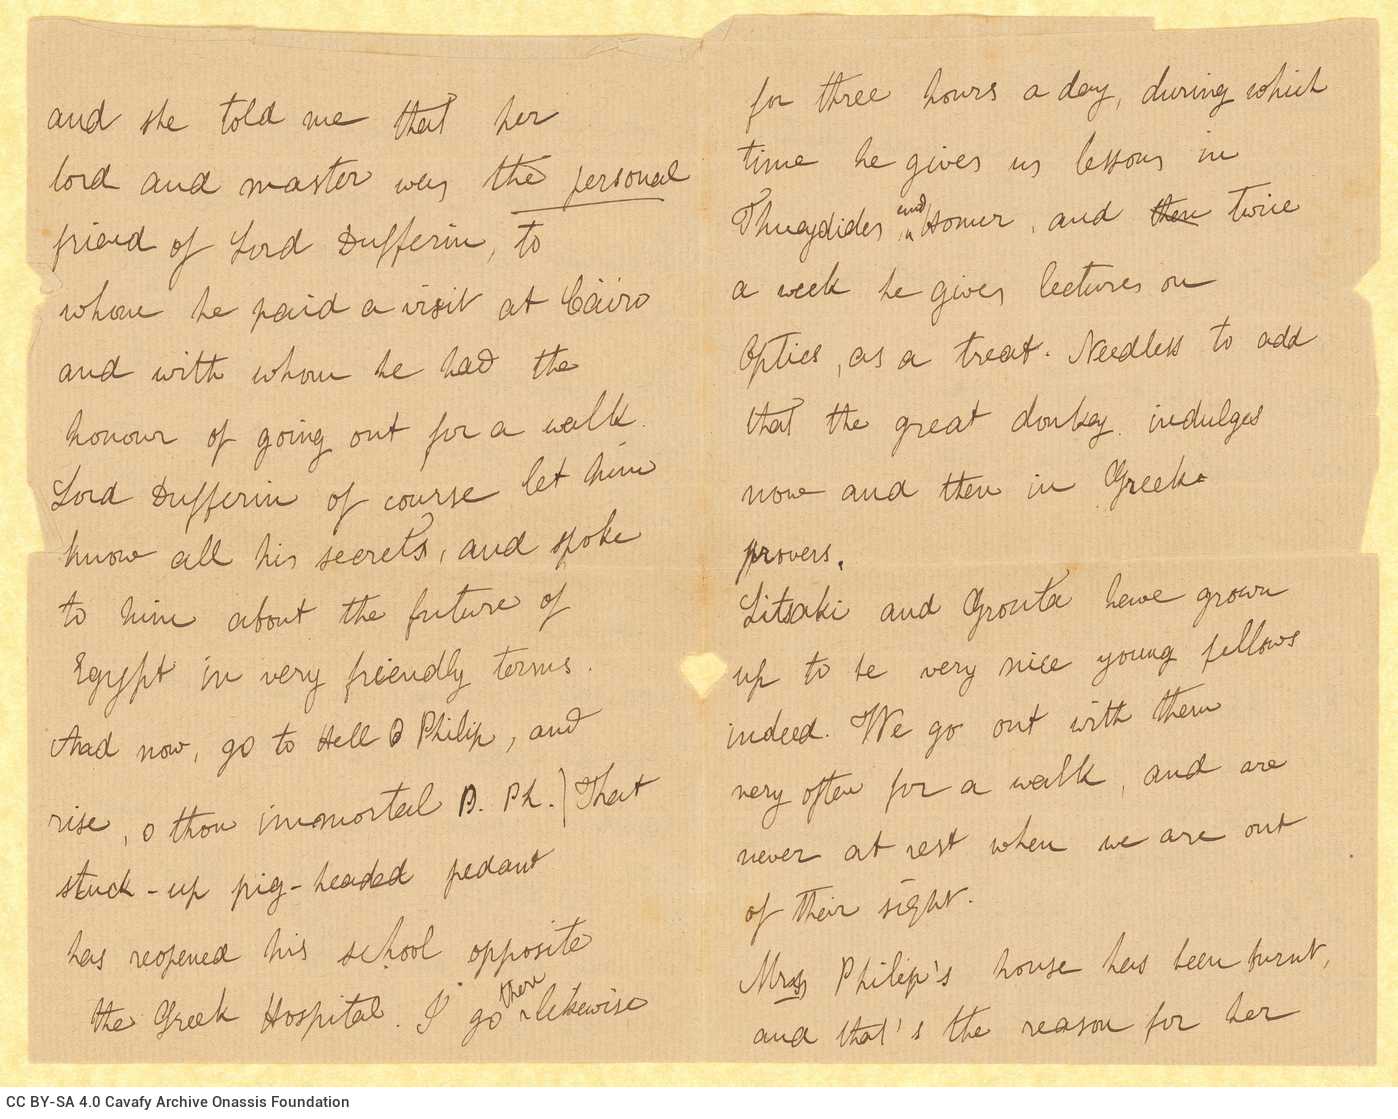 and she told me that her
lord and master was the personal
friend of Lord Dufferin, to
whom he paid a visit at Cairo
and with whom he had the
honour of going out for a walk.
Lord Dufferin of course let him
know all his secrets, and spoke
to him about the future of
Egypt in very friendly terms.
And now, go to Hell O Philip, and
rise, o thou immortal D. Ph.) That
stuck-up pig-headed pedant
has reopened his school opposite
the Greek Hospital. I go there likewise
for three hours a day, during which
time he gives us lessons in
Thucydides and Homer, and then twice
a week he gives lectures on
Optics, as a treat. Needless to add
that the great donkey indulges
now and then in Greek
provers.
Litsaki and Grouta have grown
up to be very nice young fellows
indeed. We go out with them
very often for a walk, and are
never at rest when we are out
of their sight.
Mrs Philip's house has been burnt,
and that's the reason for her
CC BY-SA 4.0 Cavafy Archive Onassis Foundation